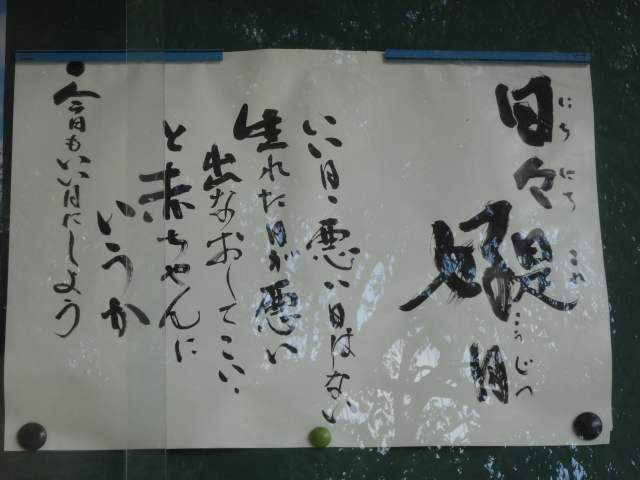 日々是好日
にちにちこれこうじつ
いい日、悪い日はない
生れた日が悪い
出なおしてこい、
と赤ちゃんに
いうか
今日もいい日にしよう